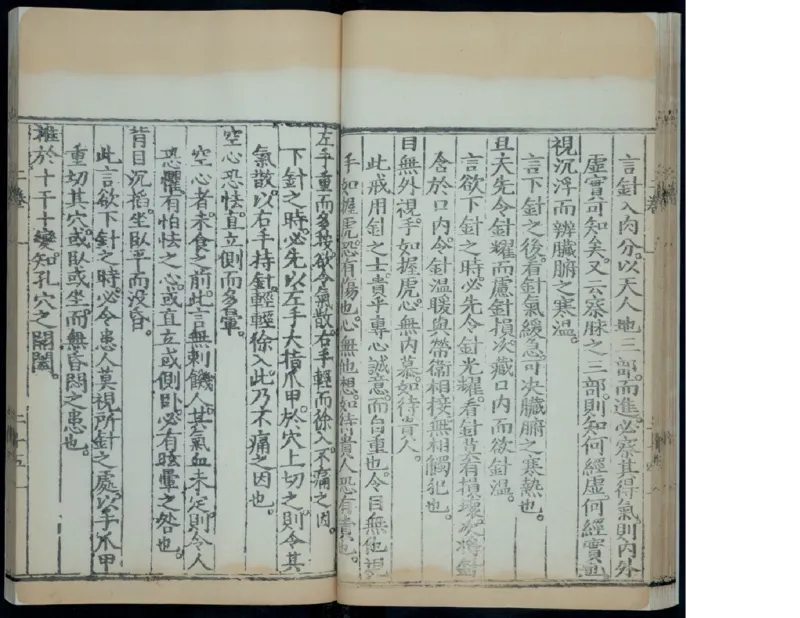 言針入肉分。以天人地三部。而進。必察其得氣。則內外
虛實可知矣。又云察脉之三部。則知何經虛。何經實也
視沉浮而辨臟腑之寒溫。
言下針之後。看針氣緩急。可决臟腑之寒熱也。
且夫先令針耀而慮針損。次藏口內而欲針溫。
言欲下針之時。必先令針光耀。看針莫有損壞。次將針
含於口內。令針溫暖與榮衛相接。無相觸犯也。
目無外視。手如握虎。心無內慕。如待貴人。
此戒用針之士。貴乎專心誠意。而自重也。令目無他視
手如握虎。恐有傷也。心無他想。如待貴人。恐有責也。
左手重而多按。欲令氣散。右手輕而徐入。不痛之因。
下針之時。必先以左手大指爪甲。於穴上切之。則令其
氣散。以右手持針。輕輕徐入。此乃不痛之因也。
空心恐怯。直立側而多暈。
空心者。未食之前。此言無刺饑人。其氣血未定。則令人
恐懼。有怕怯之心。或直立或側卧。必有眩暈之咎也。
背目沉掐。坐卧平而没昏。
此言欲下針之時。必令患人莫視所針之處。以手爪甲
重切其穴。或卧或坐。而無昏悶之患也。
推於十干十變。知孔穴之開闔。
二卷